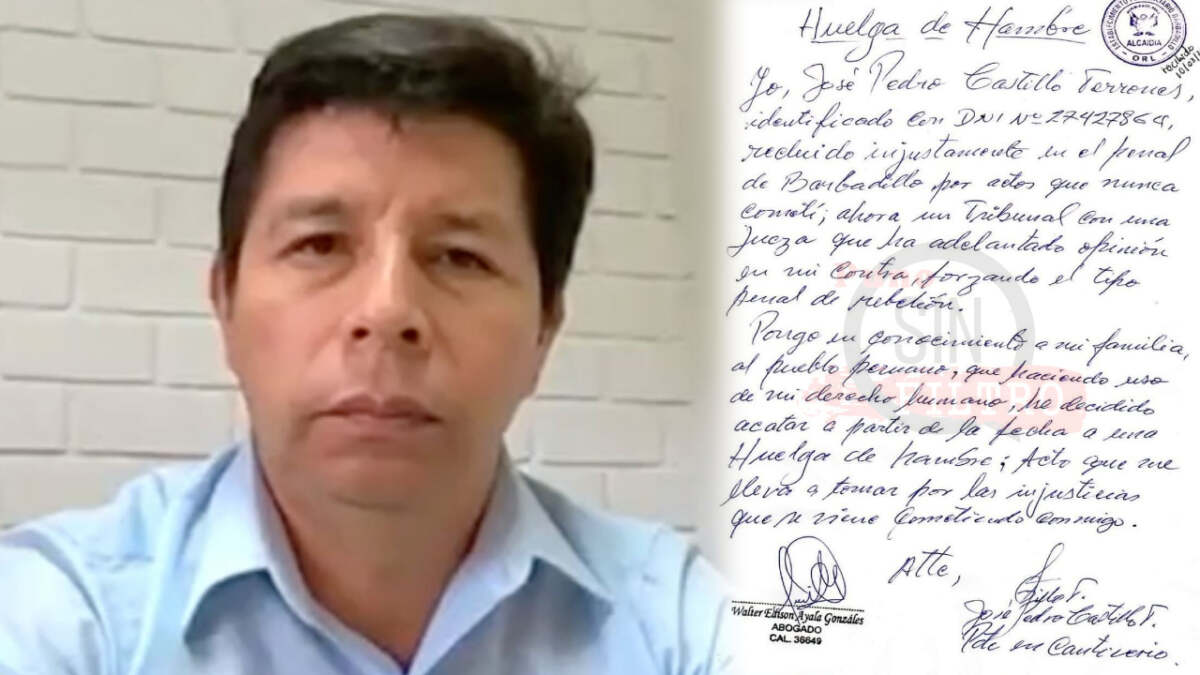 Huelga de Hambre
ALCAIDIA
ORL
recibido
Yo, José Pedro Castillo Terrones,
identificado con DNI Nº 27427864,
recluido injustamente en el penal
de Barbadillo, por actos que nunca
cometí; ahora un Tribunal con una
Jueza que ha adelantado opinión
en mi contra, forzando el tipo
penal de rebelión.
Pongo en conocimiento a mi familia,
al pueblo peruano, que haciendo uso
de mi derecho humano, he decidido
acatar a partir de la fecha a una
Huelga de hambre; Acto que me
lleva a tomar por las injusticias
que se viene cometiendo conmigo.
SIN
FILTRO
Atte,
Walter Edison Ayala Gonzáles
ABOGADO
CAL. 36649
José Pedro Castillo T.
Pdte en Cautiverio.